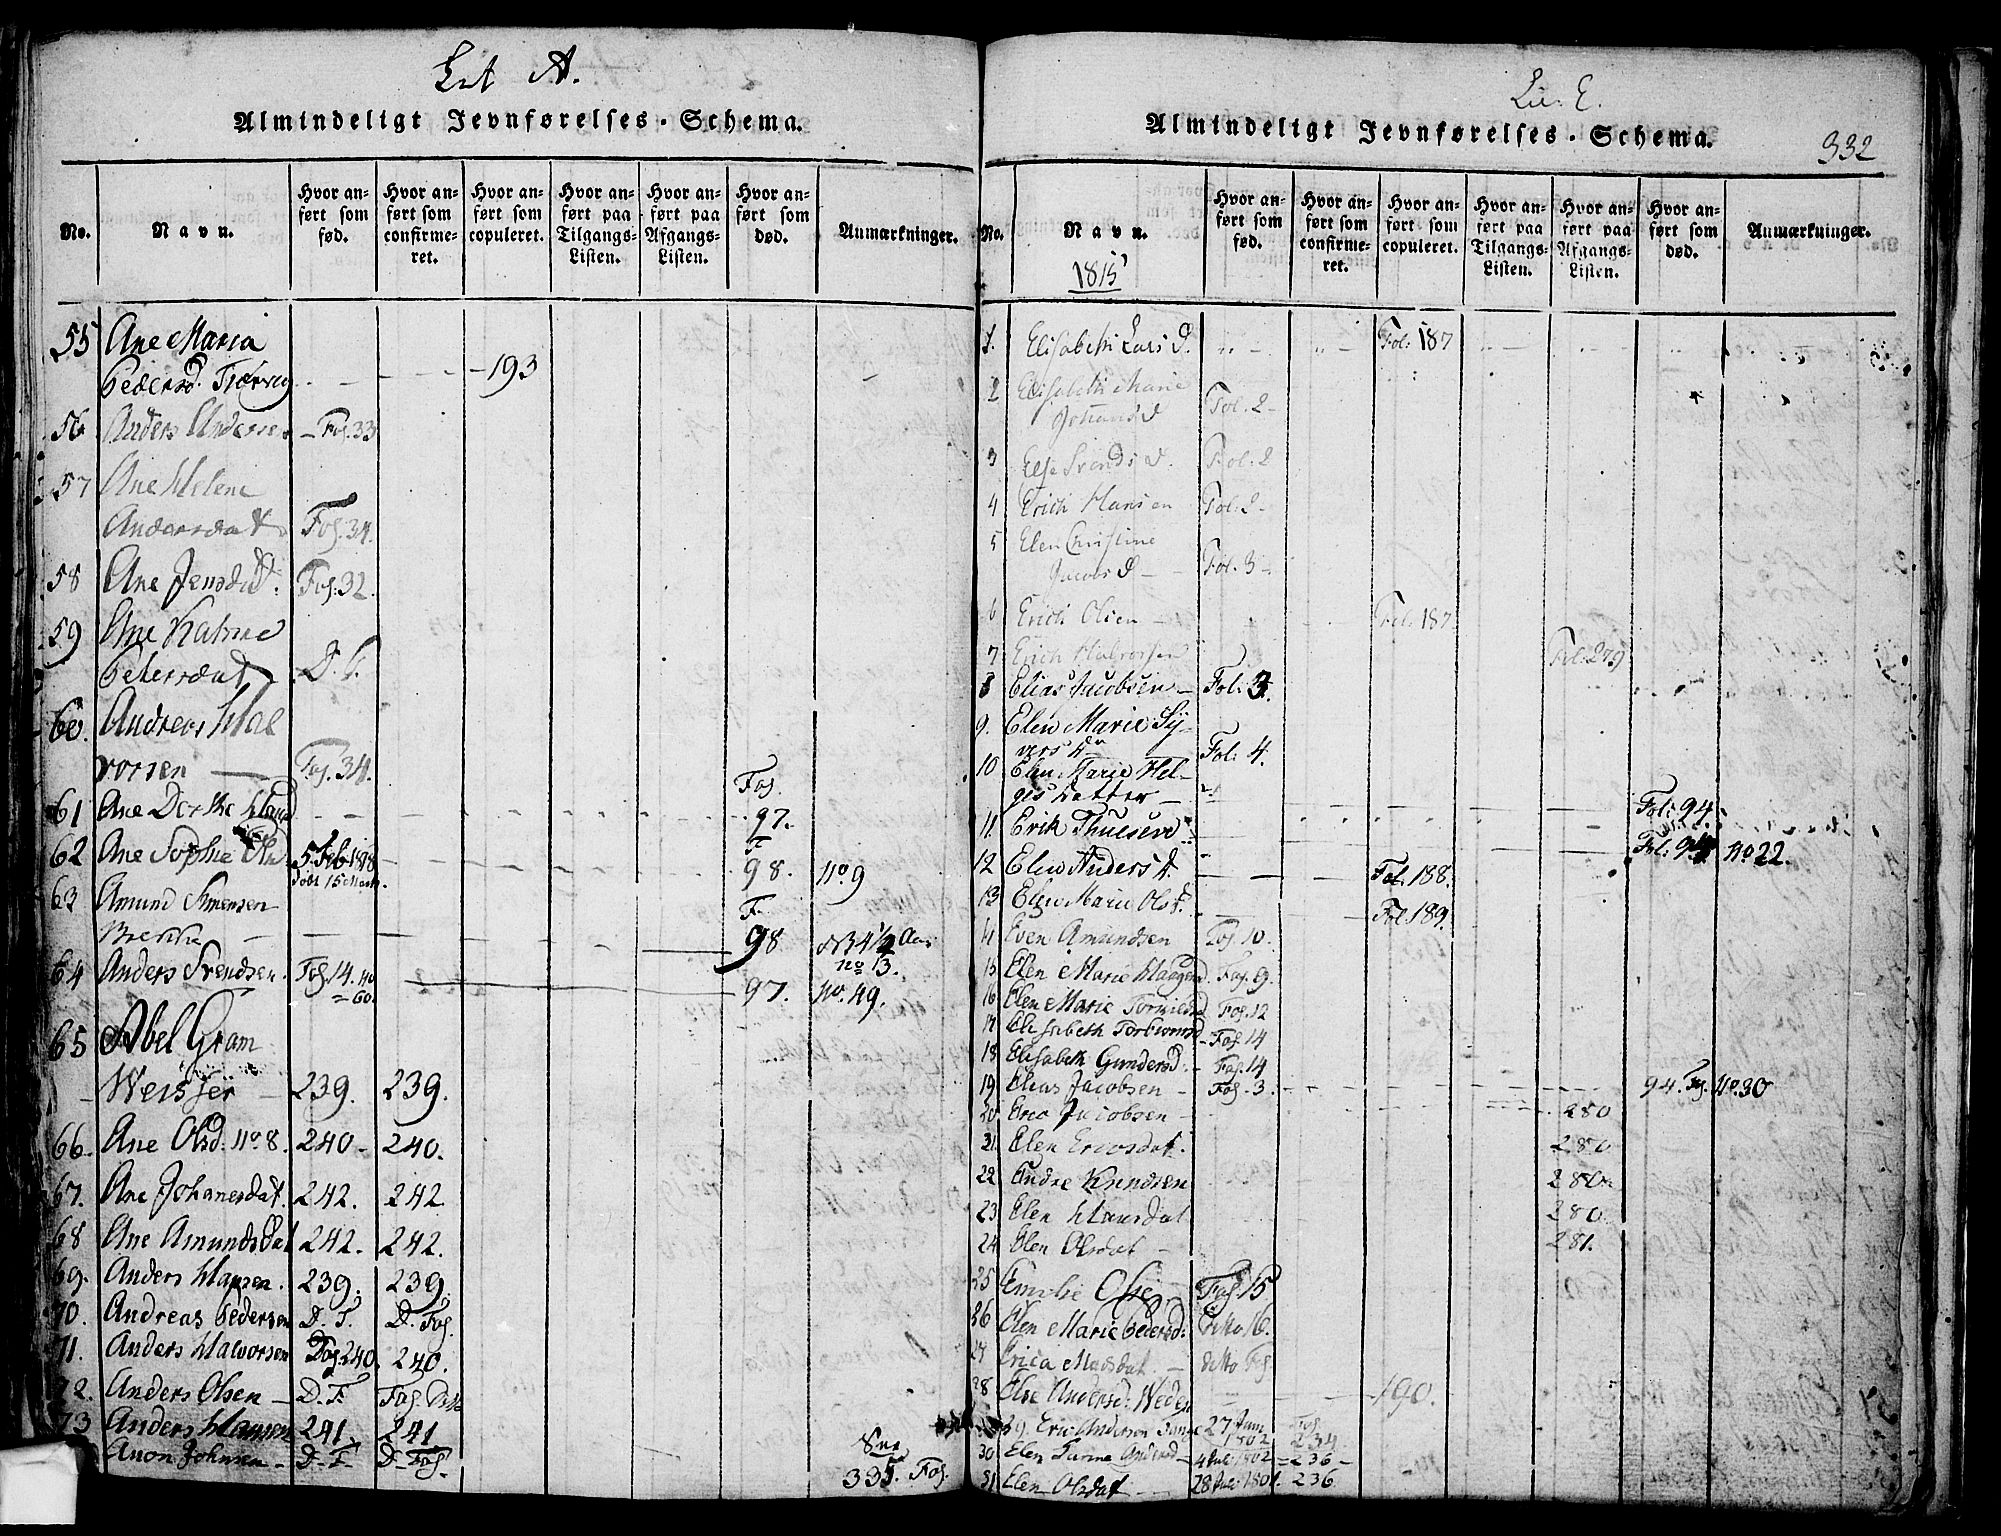 Lit A.
Almindeligt Jevnførelses-Schema.
No.
Navn.
Hvor anført som fød.
Hvor anført som confirmeret.
Hvor anført som copuleret.
Hvor anført paa Tilgangs-Listen.
Hvor anført paa Afgangs-Listen.
Hvor anført som død.
Anmærkninger.
55 Ane Maria
Pedersd. - 193
56 Anders - Fog. 33
57 Ane Helene
Andersdat Fog. 34.
58 Ane Jensdat. Fog. 32.
59 Ane
Pedersdat D. F.
60. Andreas Hal
vorsen Fog. 34.
Fog.
61 Ane Dorthe 97.
F
62 Ane Sophie 5 Feb 1818 98. No. 9
født 15 Mart.
63 Amund Simensen F.
98 NB 4 1/2 Aar
no 13.
64 Anders Svendsen. Fog. 14. 97. No. 49.
65 Abel Gram
Weisser 239. 239.
66. Ane Olsd. No. 8. 240 - 240.
67. Ane Johanesdat. 242. 242
68 Ane Amundsdat 242. 242.
69. Anders Hansen. 239. 239.
70. Andreas Pedersen D. F. D. Fog.
71. Anders Halvorsen Fog. 240. 240.
72. Anders Olsen - D. F. Fog. Ditto
73 Anders Hansen 241. 241
Anon Johnsen - D. F. D. Fog.
335. Fog.
Lit. E.
Almindeligt Jevnførelses-Schema.
332
No.
Navn.
1815
Hvor anført som fød.
Hvor anført som confirmeret.
Hvor anført som copuleret.
Hvor anført paa Tilgangs-Listen.
Hvor anført paa Afgangs-Listen.
Hvor anført som død.
Anmærkninger.
1. Elisabeth Lars D. Fol: 187
2 Elisabeth Marie
Johans D Fol. 2 -
3 Else Svends D. Fol. 2
4 Erich Hansen Fol. 2 -
5 Elen Christine
Jacobs D - Fol. 3 -
6 Erich Olsen - Fol. 187
7 Erich Halvorsen Fol. 279
8 Elias Jacobsen - Fol: 3.
9. Elen Marie Sy-
vers d Fol: 4.
10 Elen Marie Hel-
ges datter - Fol: 94.
11. Erik Thuesen Fol: 94 No 22.
12 Elen Anders d. Fol: 188.
13 Elen Marie Olsd. Fol 189.
14 Even Amundsen Fog. 10.
15 Elen Marie Haagensd. Fog. 9.
16 Elen Marie Fog. 12
17 Elisabeth - Fog. 14
18 Elisabeth Gundersd. - Fog. 14
19 Elias Jacobsen - Fog. 3. 94. Fog. No. 30
20 Eric Jacobsen - 280
21 Elen Ericsdat. 280
22 Endre Knudsen 280.
23 Elen Hansdat 280.
24 Elen Olsdat - 281.
25 Emilie Fog. 15
26 Elen Marie Pedersd: Ditto 16.
27 Erica Madsdat. - ditto Fog.
28 Else Andersd: 190.
29. Eric Andersen 27 Juni 1802 Fog. 234.
30 Elen 4 Juli 1802 - 236 -
31 Elen Olsdat - 28 1801. 236